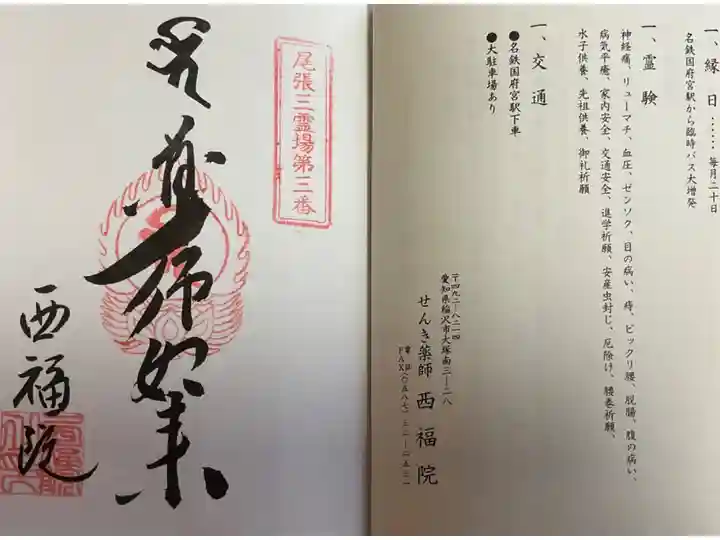 尾張三霊場第三番
薬師如来
西福院
一、縁日……毎月二十日
名鉄国府宮駅から臨時バス大増発
一、霊験
神経痛、リューマチ、血圧、ゼンソク、目の病い、痔、ビックリ腰、脱腸、腹の病い、
病気平癒、家内安全、交通安全、進学祈願、安産虫封じ、厄除け、腰巻祈願、
水子供養、先祖供養、御礼祈願
一、交通
●名鉄国府宮駅下車
●大駐車場あり
〒四九二―八二一四
愛知県稲沢市大塚南三―二八
せんき薬師 西福院